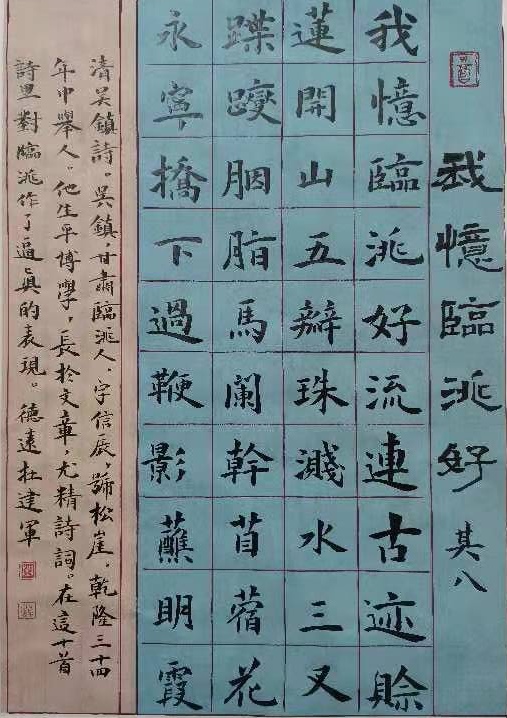 我憶臨洮好 其八
我憶臨洮好流連古迹賒
蓮開山五瓣珠濺水三叉
蹀躞胭脂馬闌幹苜蓿花
永寧橋下過鞭影蘸明霞
清吴鎮詩。吴鎮,甘肅臨洮人,字信辰,號松崖,乾隆三十四
年中舉人。他生平博學,長於文章,尤精詩詞。在這十首
詩里對臨洮作了逼真的表現。德遠杜建軍